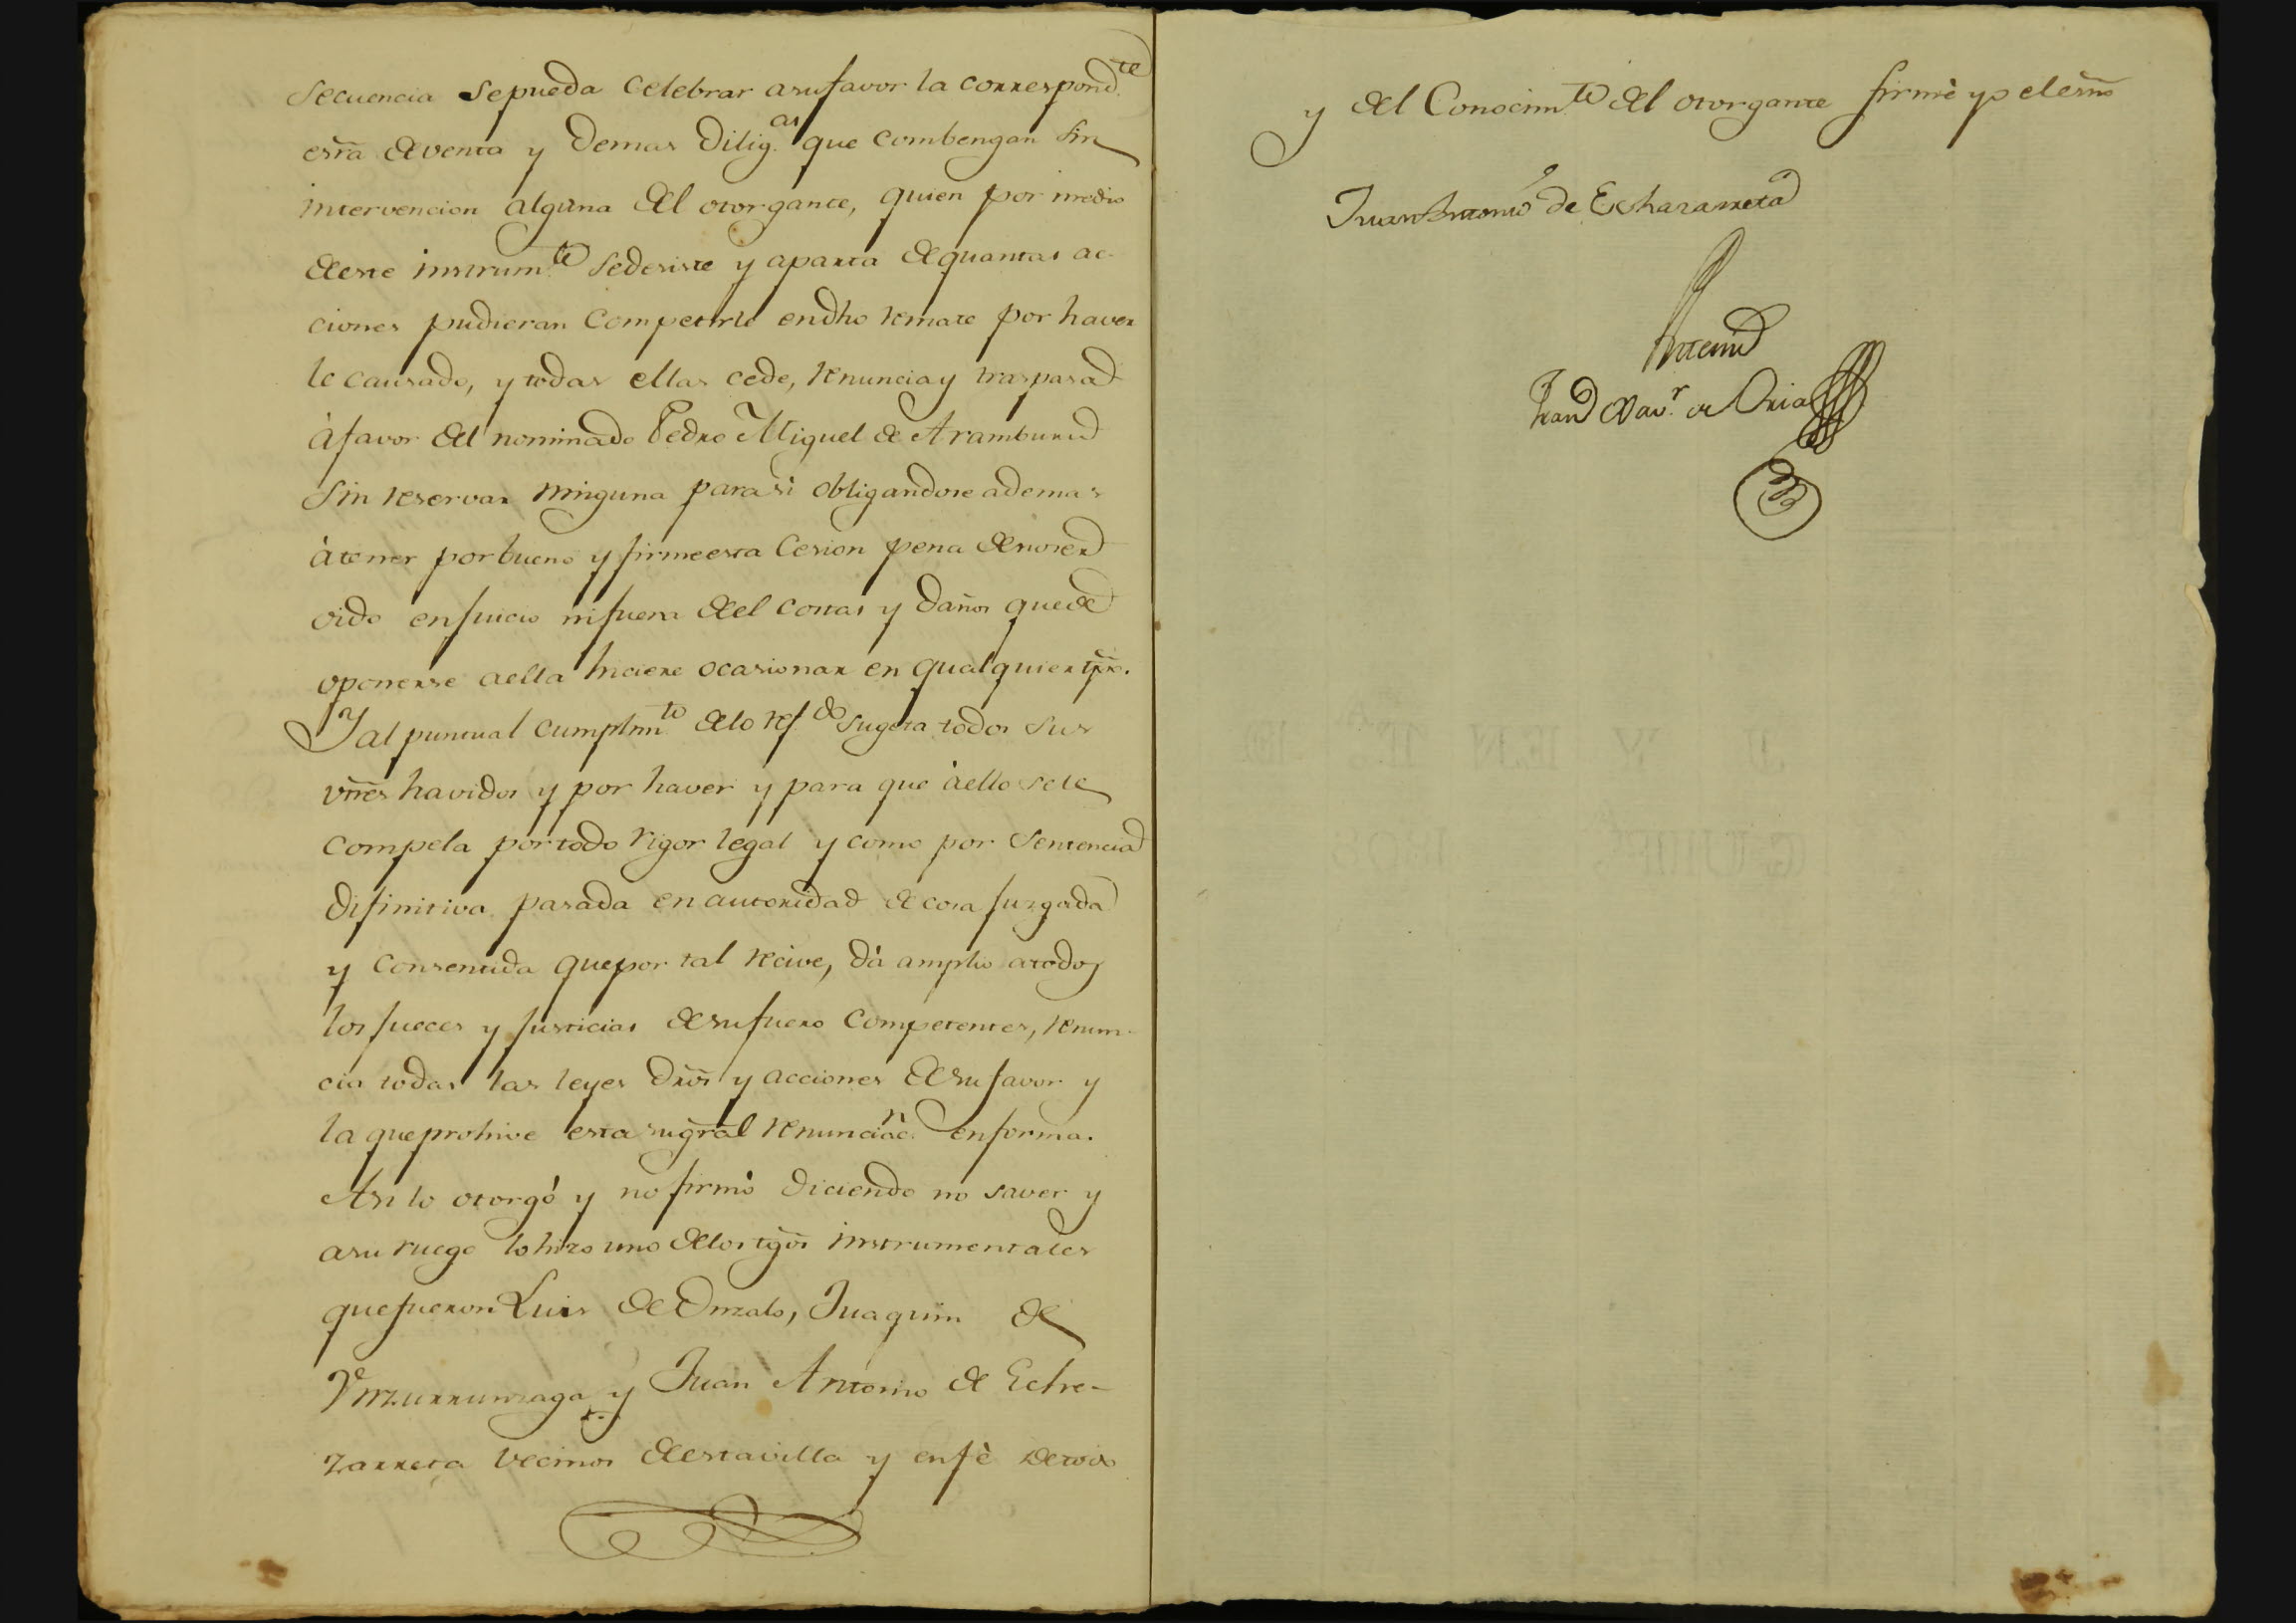 secuencia sepueda celebrar asufavor la correspond.te
esrâ deventa y demas dilig.as que combengan sin
intervencion alguna del otorgante, quien por medio
deeste instrum.to sedesiste y aparta dequantas ac-
ciones pudieran competirle endho remate por haver
le causado, y todas ellas cede, renuncia y traspasa
à favor del nominado Pedro Miguel de Aramburu
sin reservar ninguna parasi obligandose ademas
àtener por bueno y firme esta Cesion pena denoser
oido enjuicio nifuera deel costas y daños quede
oponerse aella hiciere ocasionar en qualquier tpõ.
Y al puntual cumplim.to delo ref.do sugeta todos sus
vñes havidos y por haver y para que àello sele
compela portodo rigor legal y como por sentencia
difinitiva pasada en autoridad de cosa juzgada
y consentida quepor tal recive, dà amplio atodos
los jueces y justicias desufuero competentes, renun-
cia todas las leyes drõs y acciones desufavor y
la queprohive esta sugrãl renunciac.n enforma.
Asi lo otorgó y no firmó diciendo no saver y
asu ruego lohizo uno delos tgõs instrumentales
quefueron Luis de Onzalo, Juaquin de
Ynzurrunzaga y Juan Antonio de Eche-
zarreta vecinos deestavilla y enfè detodo
y del Conocim.to del otorgante firmè yo el esnõ
Juan Antonio de Echazarreta
Antemi
Fran.co Xav.r de Oria